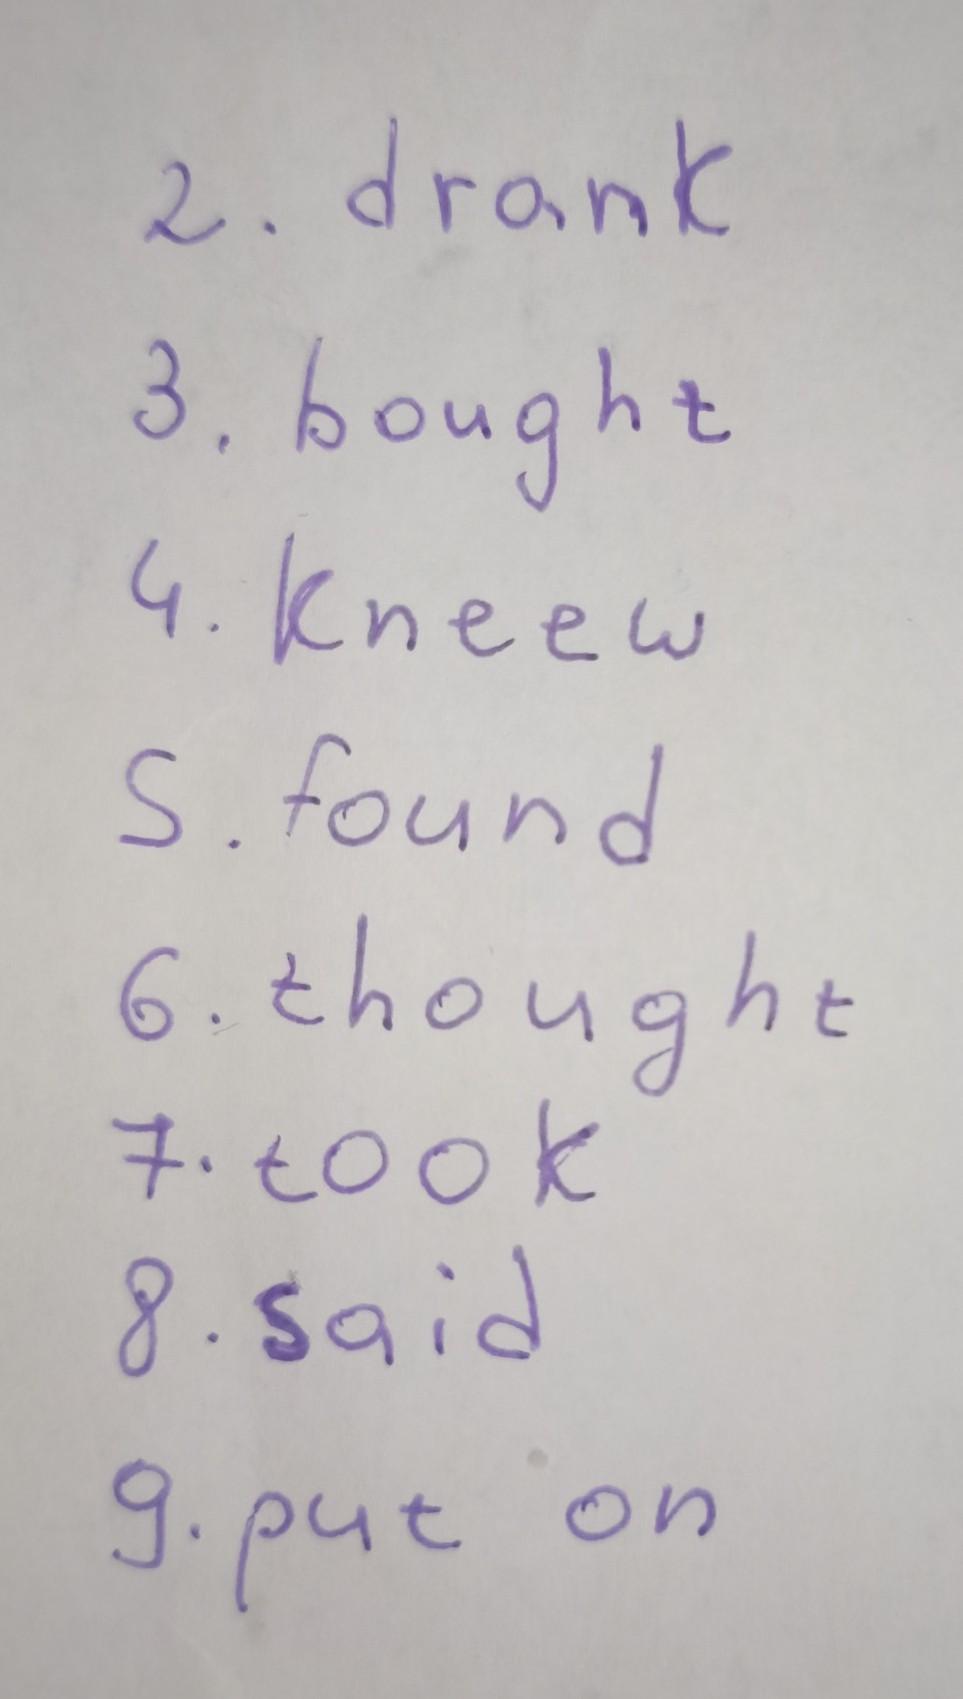 2. drank
3. bought
4. kneew
5. found
6. thought
7. took
8. said
9. put on